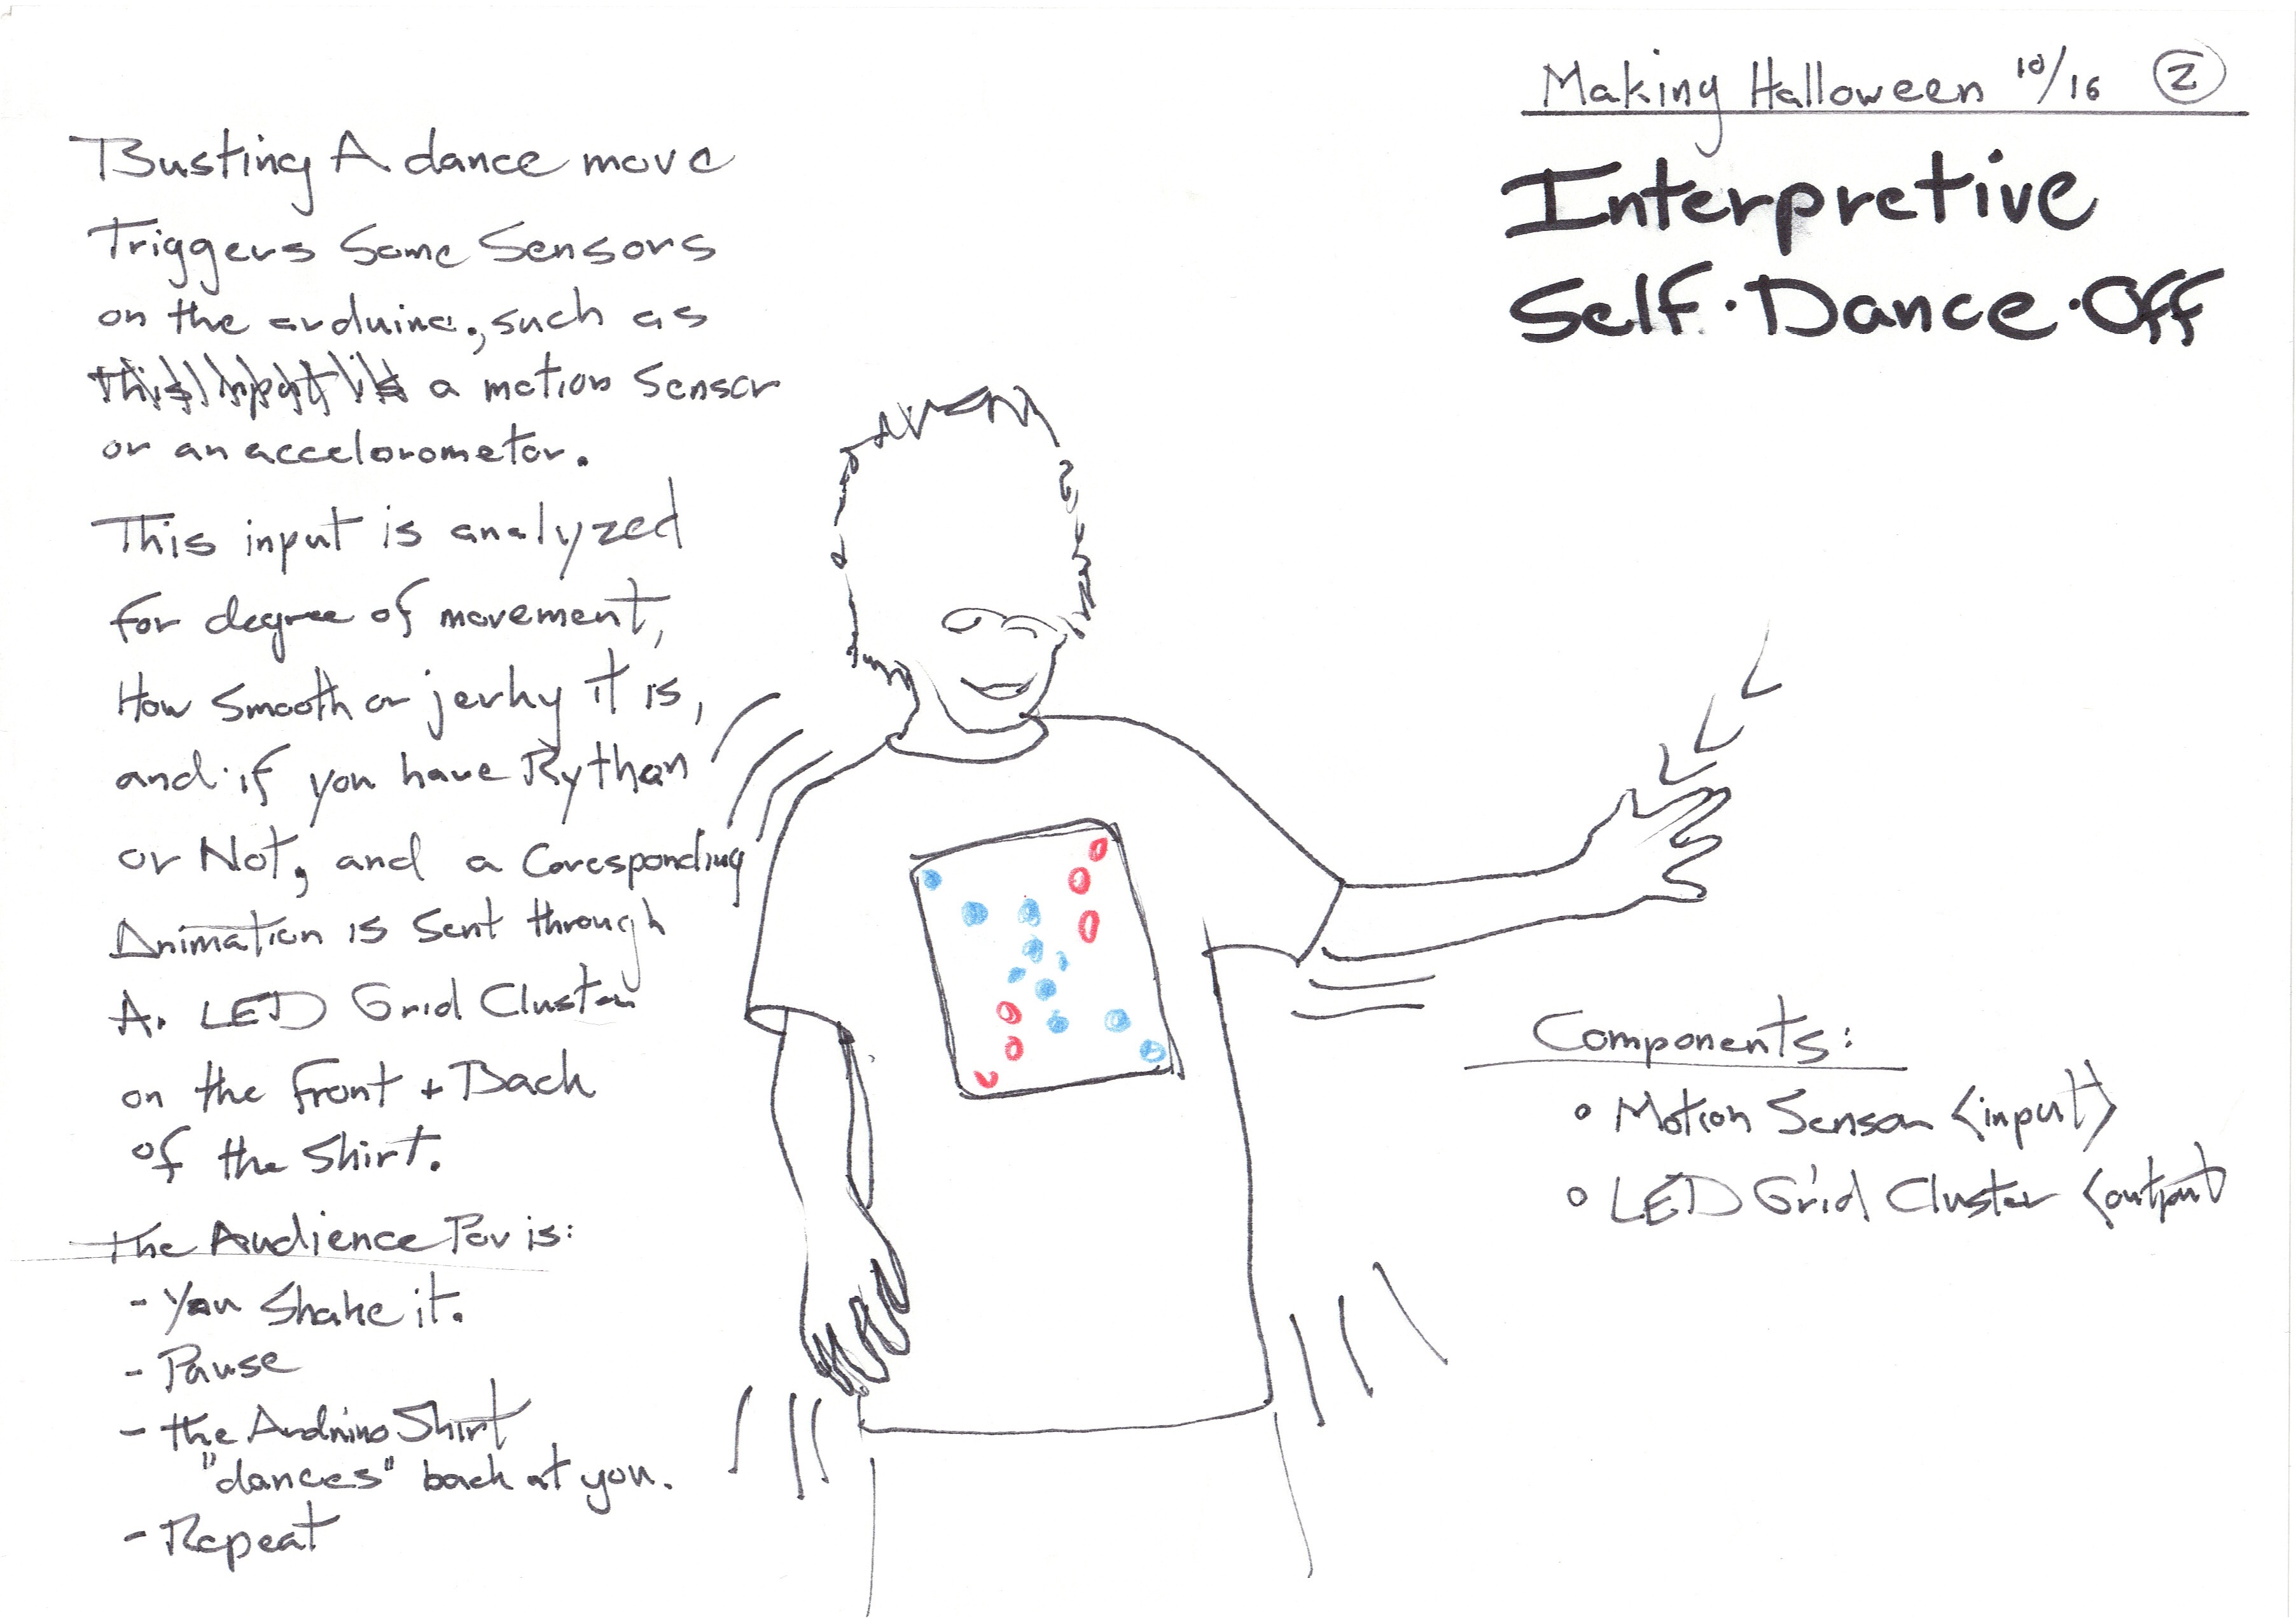 Making Halloween 10/16 2
Interpretive
Self·Dance·Off
Busting A dance move
Triggers Some Sensors
on the arduino, such as
This input is a motion sensor
or an accelorometor.
This input is analyzed
for degree of movement,
How smooth or jerky it is,
and if you have Rythan
or Not, and a Coresponding
Animation is sent through
A. LED Grid Cluster
on the front + Back
of the Shirt.
The Audience Pov is:
- You Shake it.
- Pause
- the Arduino Shirt
"dances" back at you.
- Repeat
Components:
• Motion Sensor <input>
• LED Grid Cluster <output